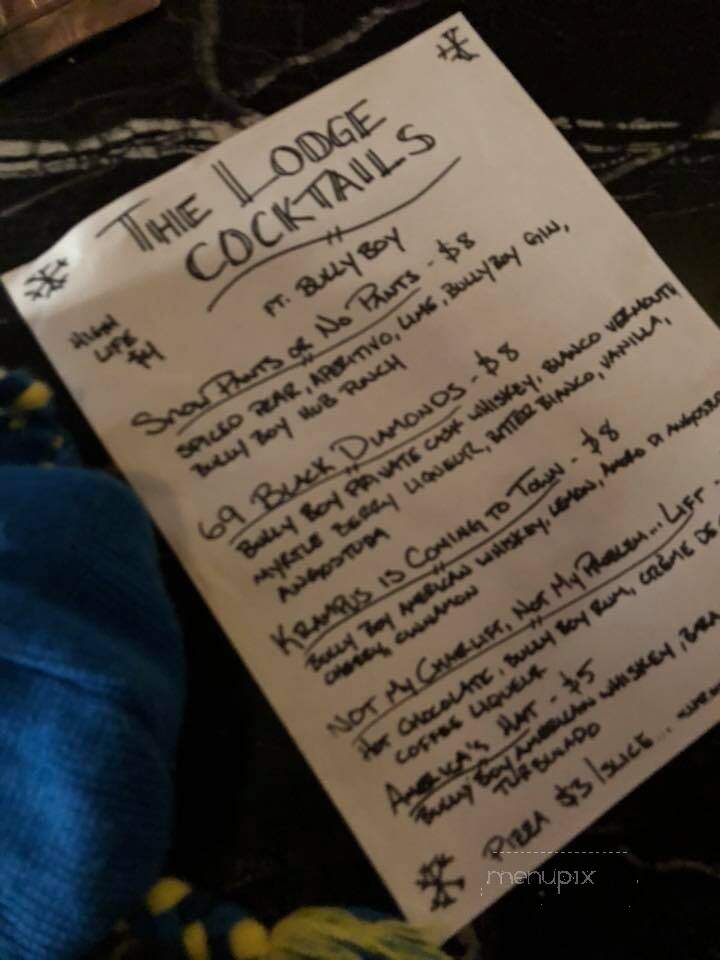 THE LODGE
COCKTAILS
FT. BULLY BOY
HIGH
LIFE
$4
SNOW PANTS OR NO PANTS - $8
SPICED PEAR, APERITIVO, LIME, BULLY BOY GIN,
BULLY BOY HUB PUNCH
69 BLACK DIAMONDS - $8
BULLY BOY PRIVATE CASK WHISKEY, BIANCO VERMOUTH
MYRTLE BERRY LIQUEUR, BITTER BIANCO, VANILLA,
ANGOSTURA
KRAMPUS IS COMING TO TOWN - $8
BULLY BOY AMERICAN WHISKEY, LEMON, AMARO DI ANGOSTURA
CHERRY, CINNAMON
NOT MY CHAIRLIFT, NOT MY PROBLEM... LIFT -
HOT CHOCOLATE, BULLY BOY RUM, CRÈME DE
COFFEE LIQUEUR
AMERICA'S HAT - $5
BULLY BOY AMERICAN WHISKEY,
TURBINADO
PIZZA $3/SLICE...
menupix